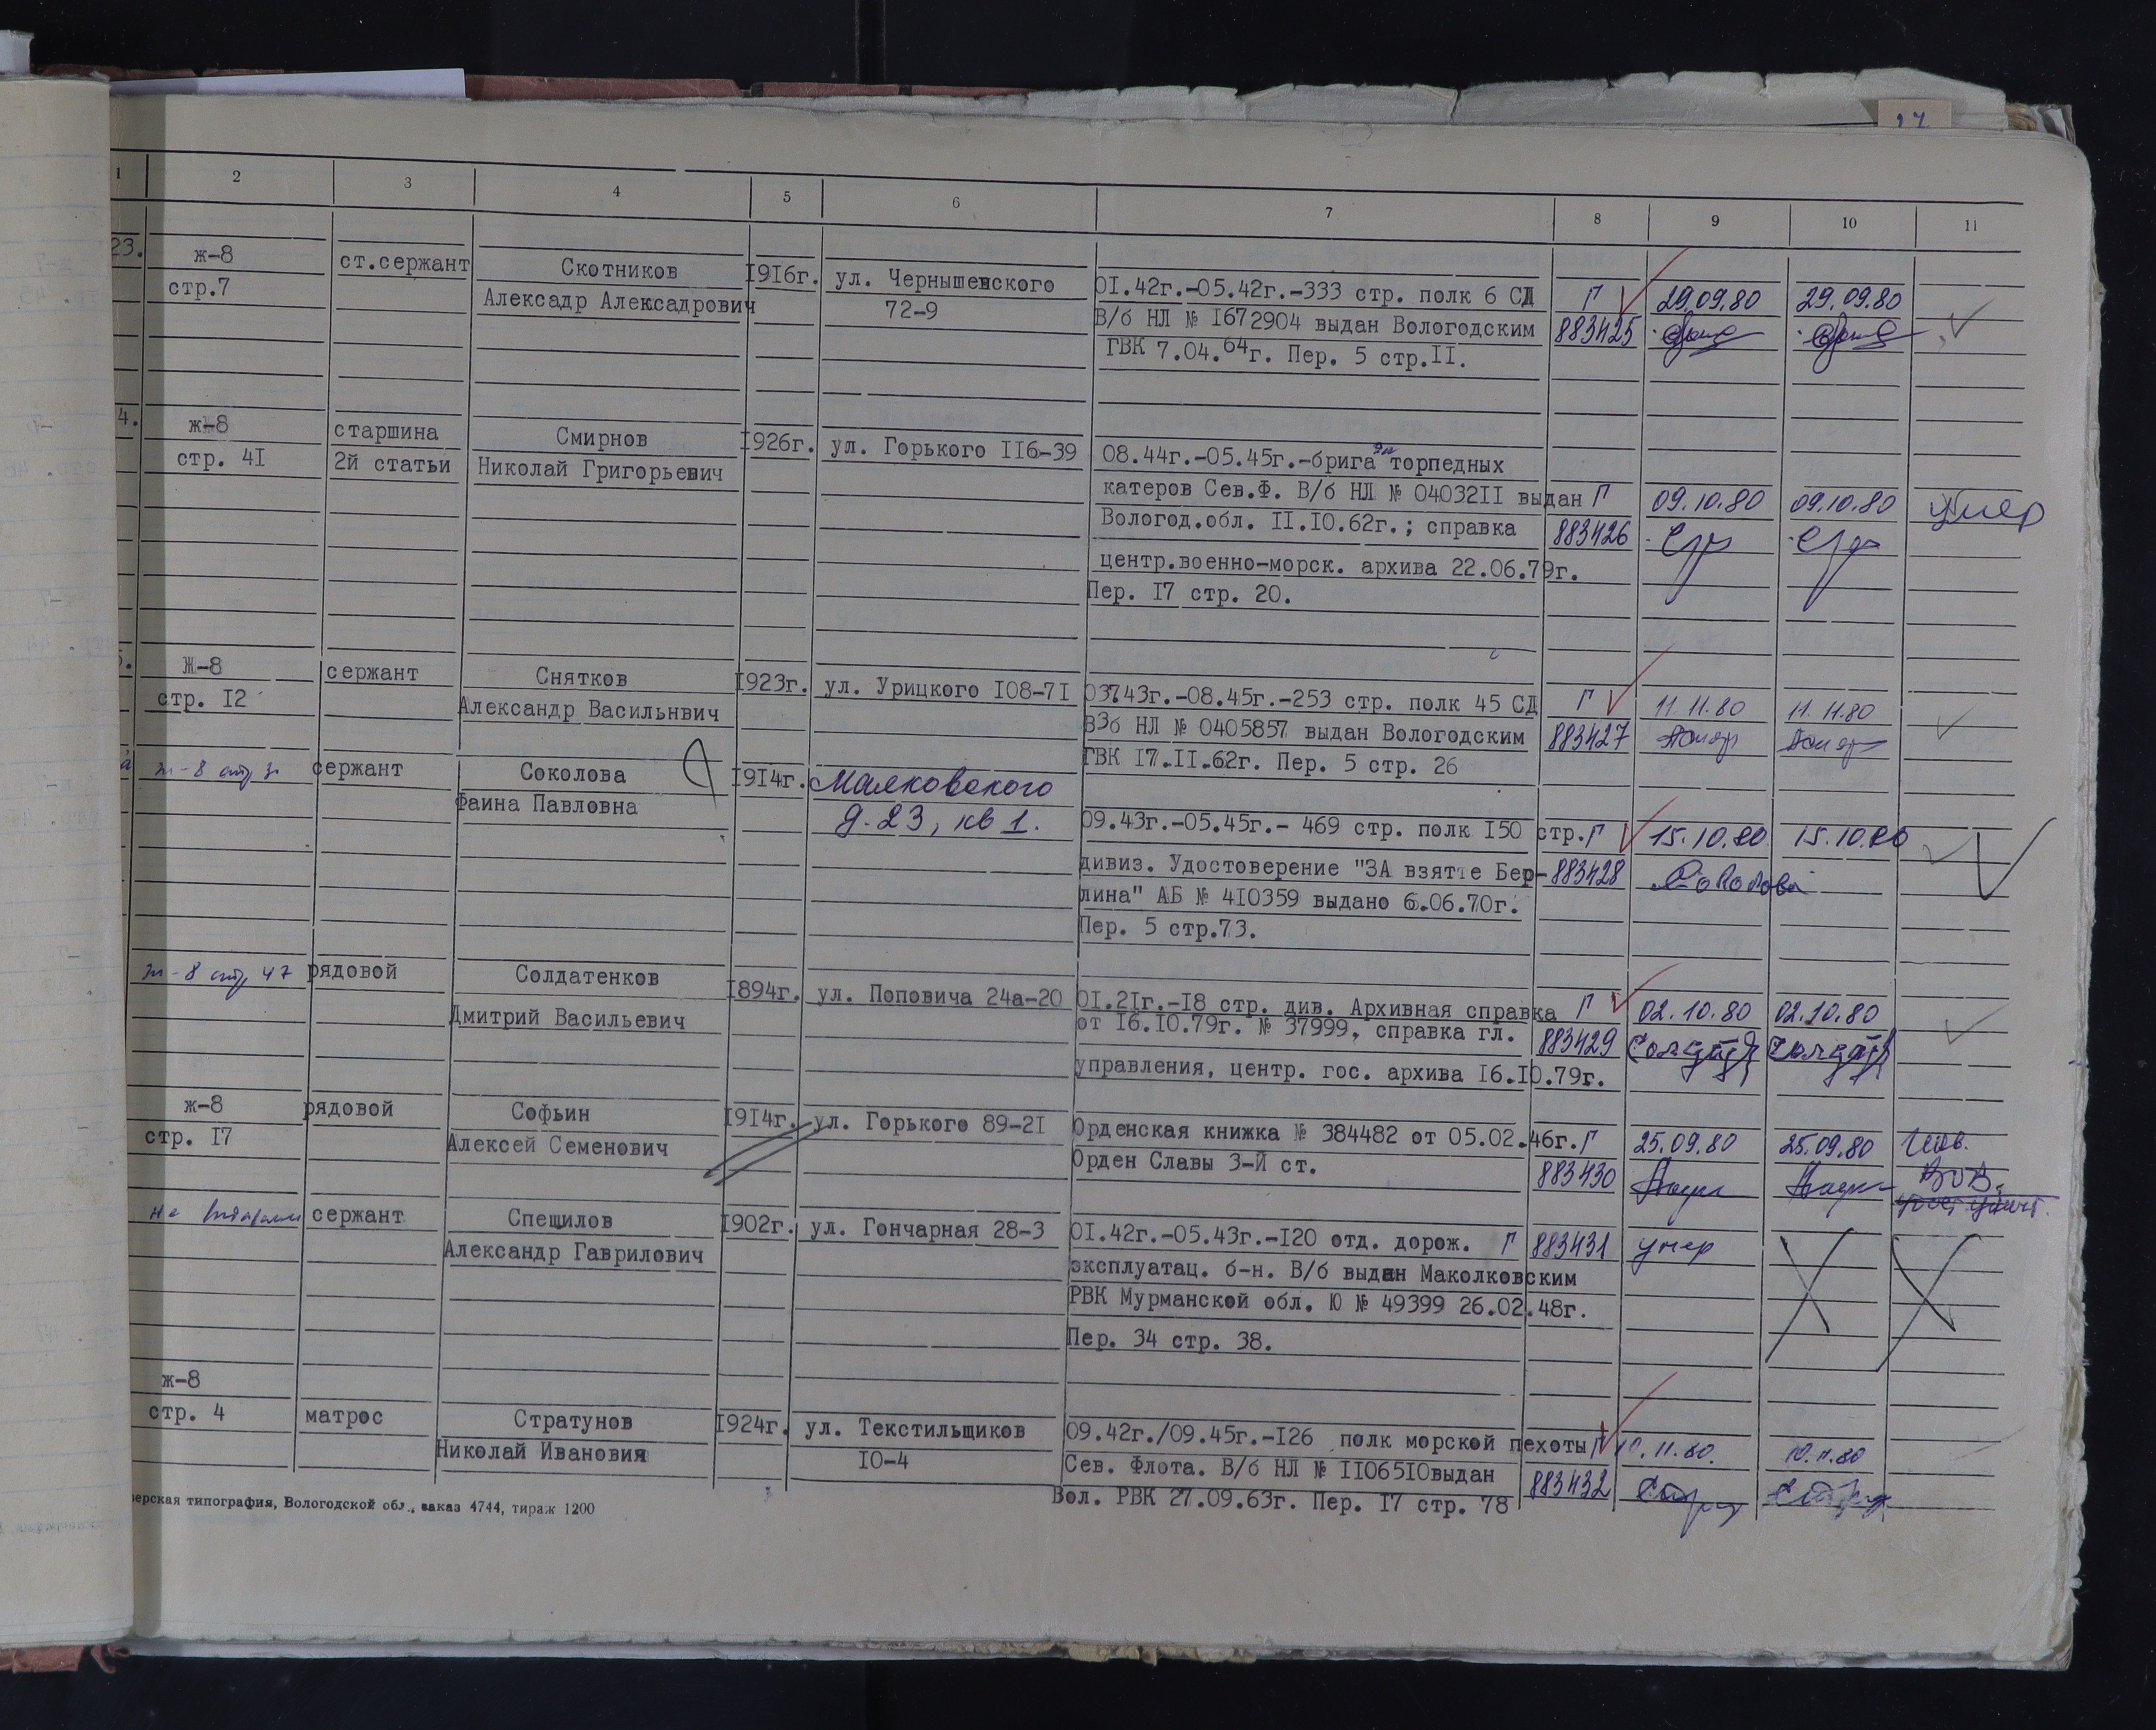 1 2 3 4 5 6 7 8 9 10 11
23. ж-8 ст.сержант Скотников 1916г. ул. Чернышевского 01.42г.-05.42г.-333 стр. полк 6 СД Г 29.09.80 29.09.80
стр.7 Алексадр Алексадрович 72-9 В/б НЛ № 1672904 выдан Вологодским 883425
ГВК 7.04.64г. Пер. 5 стр.II.
4. ж-8 старшина Смирнов 1926г. ул. Горького 116-39 08.44г.-05.45г.-брига да торпедных
стр. 41 2й статьи Николай Григорьевич катеров Сев.Ф. В/б НЛ № 0403211 выдан Г 09.10.80 09.10.80 умер
Вологод.обл. II.10.62г.; справка 883426
центр.военно-морск. архива 22.06.79г.
Пер. 17 стр. 20.
5. Ж-8 сержант Снятков 1923г. ул. Урицкого 108-71 03743г.-08.45г.-253 стр. полк 45 СД Г 11.11.80 11.11.80
стр. 12 Александр Васильнвич В3б НЛ № 0405857 выдан Вологодским 883427
ГВК 17.II.62г. Пер. 5 стр. 26
ж-8 сержант Соколова 1914г. Маяковского
Фаина Павловна д. 23, кв 1. 09.43г.-05.45г.- 469 стр. полк 150 стр. Г 15.10.80 15.10.80
дивиз. Удостоверение "ЗА взятте Бер- 883428 Соколова
лина" АБ № 410359 выдано 6.06.70г.
Пер. 5 стр.73.
ж-8 стр 47 рядовой Солдатенков 1894г. ул. Поповича 24а-20 01.21г.-18 стр. див. Архивная справка Г 02.10.80 02.10.80
Дмитрий Васильевич от 16.10.79г. № 37999, справка гл. 883429
управления, центр. гос. архива 16.10.79г.
ж-8 рядовой Софьин 1914г. ул. Горького 89-21 Орденская книжка № 384482 от 05.02.46г. Г 25.09.80 25.09.80 Инв.
стр. 17 Алексей Семенович Орден Славы 3-Й ст. 883430 ВОВ.
сержант Специлов 1902г. ул. Гончарная 28-3 01.42г.-05.43г.-120 отд. дорож. Г 883431 умер
Александр Гаврилович эксплуатац. б-н. В/б выдан Маколковским
РВК Мурманской обл. Ю № 49399 26.02.48г.
Пер. 34 стр. 38.
ж-8
стр. 4 матрос Стратунов 1924г. ул. Текстильщиков 09.42г./09.45г.-126 полк морской пехоты Г 10.11.80. 10.11.80
Николай Ивановия 10-4 Сев. Флота. В/б НЛ № 1106510выдан 883432
Вол. РВК 27.09.63г. Пер. 17 стр. 78
верская типография, Вологодской обл., заказ 4744, тираж 1200